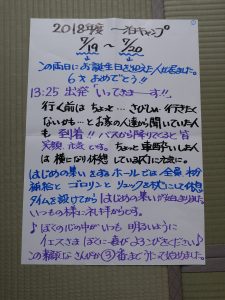 2018年度 一泊キャンプ
7/19 〜 7/20
この両日にお誕生日を迎えた人が居ました。
6才おめでとう!!
13:25 出発「いってきまーす!!」
行く前は ちょっと… さびしい…行きたく
ないかも…とお家の人達から聞いていた人
も 到着!! バスから降りてくると 皆
笑顔 元気 とする。ちょっと車酔いした人
は 横になり休憩している内に元気に。
はじめの集いをするホールでは 全員 水分
補給と ゴロリンと リュックを枕にして休憩
タイムを設けてから はじめの集いが始まりました。
いつもの様に お礼拝からです。
♪ ぼくの心の中が いつも 明るいように
イエスさまは ぼくに 喜び よろこびをください♪
この素敵な さんびか ③番までうたって始めました。